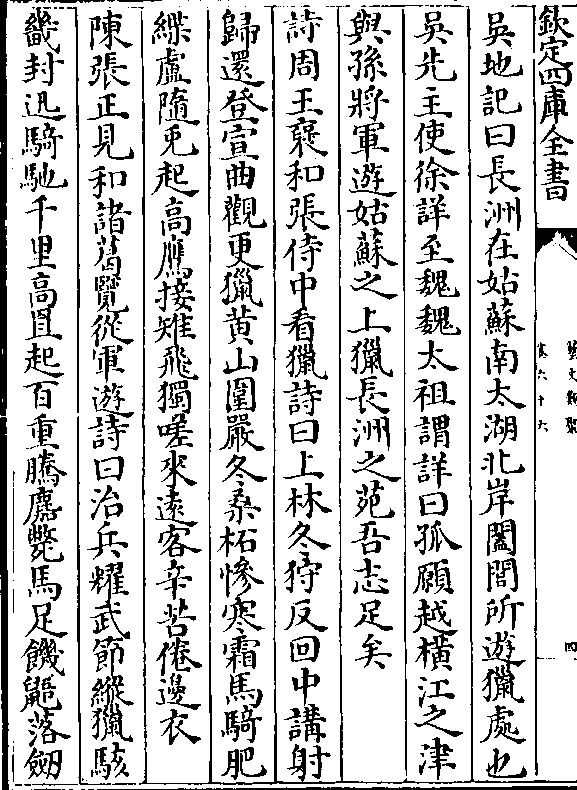 欽定四庫全書
藝文類聚
卷六十六
四
吳地記曰長洲在姑蘇南太湖北岸闔閭所遊獵處也
吳先主使徐詳至魏魏太祖謂詳曰孤願越橫江之津
與孫將軍遊姑蘇之上獵長洲之苑吾志足矣
詩周王襃和張侍中看獵詩曰上林冬狩反回中講射
歸還登宣曲觀更獵黄山圍嚴冬桑柘慘寒霜馬騎肥
緤盧隨兎起高鷹接雉飛獨嗟來遠客辛苦倦邊衣
陳張正見和諸葛覽從軍遊詩曰治兵耀武節縱獵駭
畿封迅騎馳千里高罝起百重騰麏斃馬足饑鼯落劒